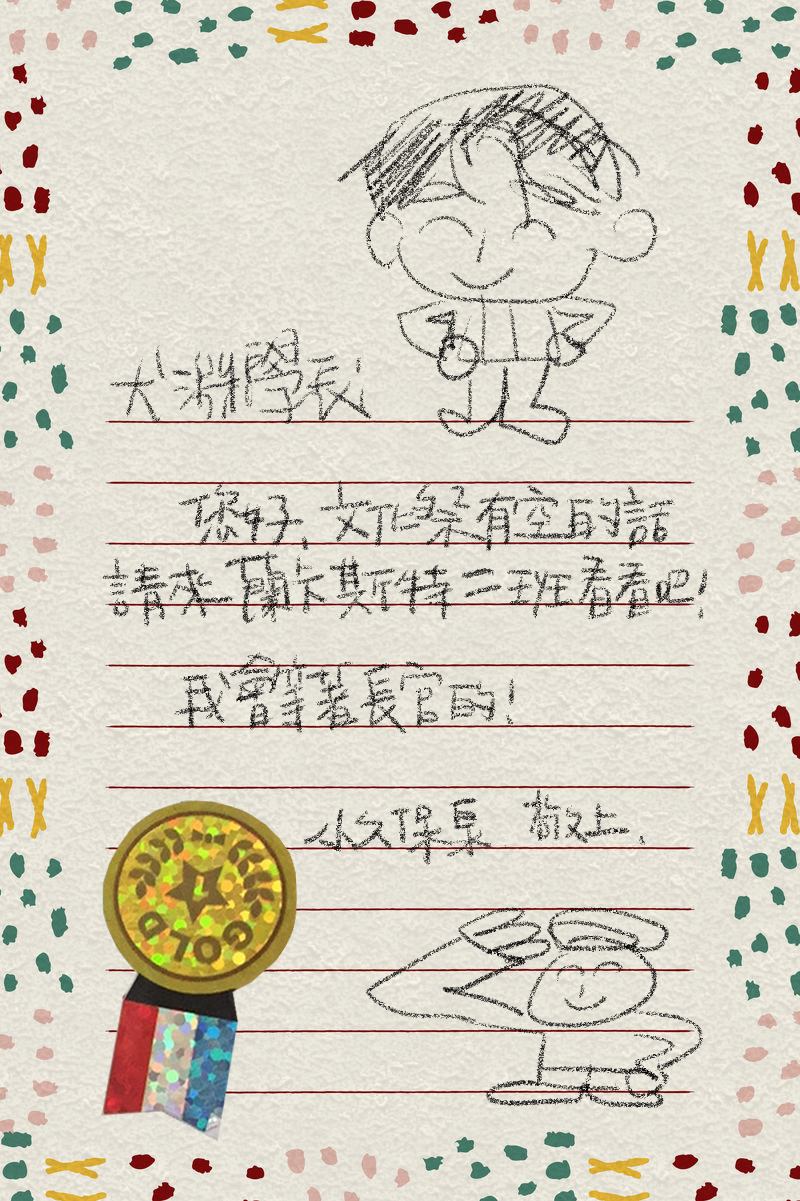 犬淵學長
您好,文化祭有空的話
請來蘭卡斯特二班看看吧!
我會等著長官的!
小久保泉 敬上.
1
GOLD